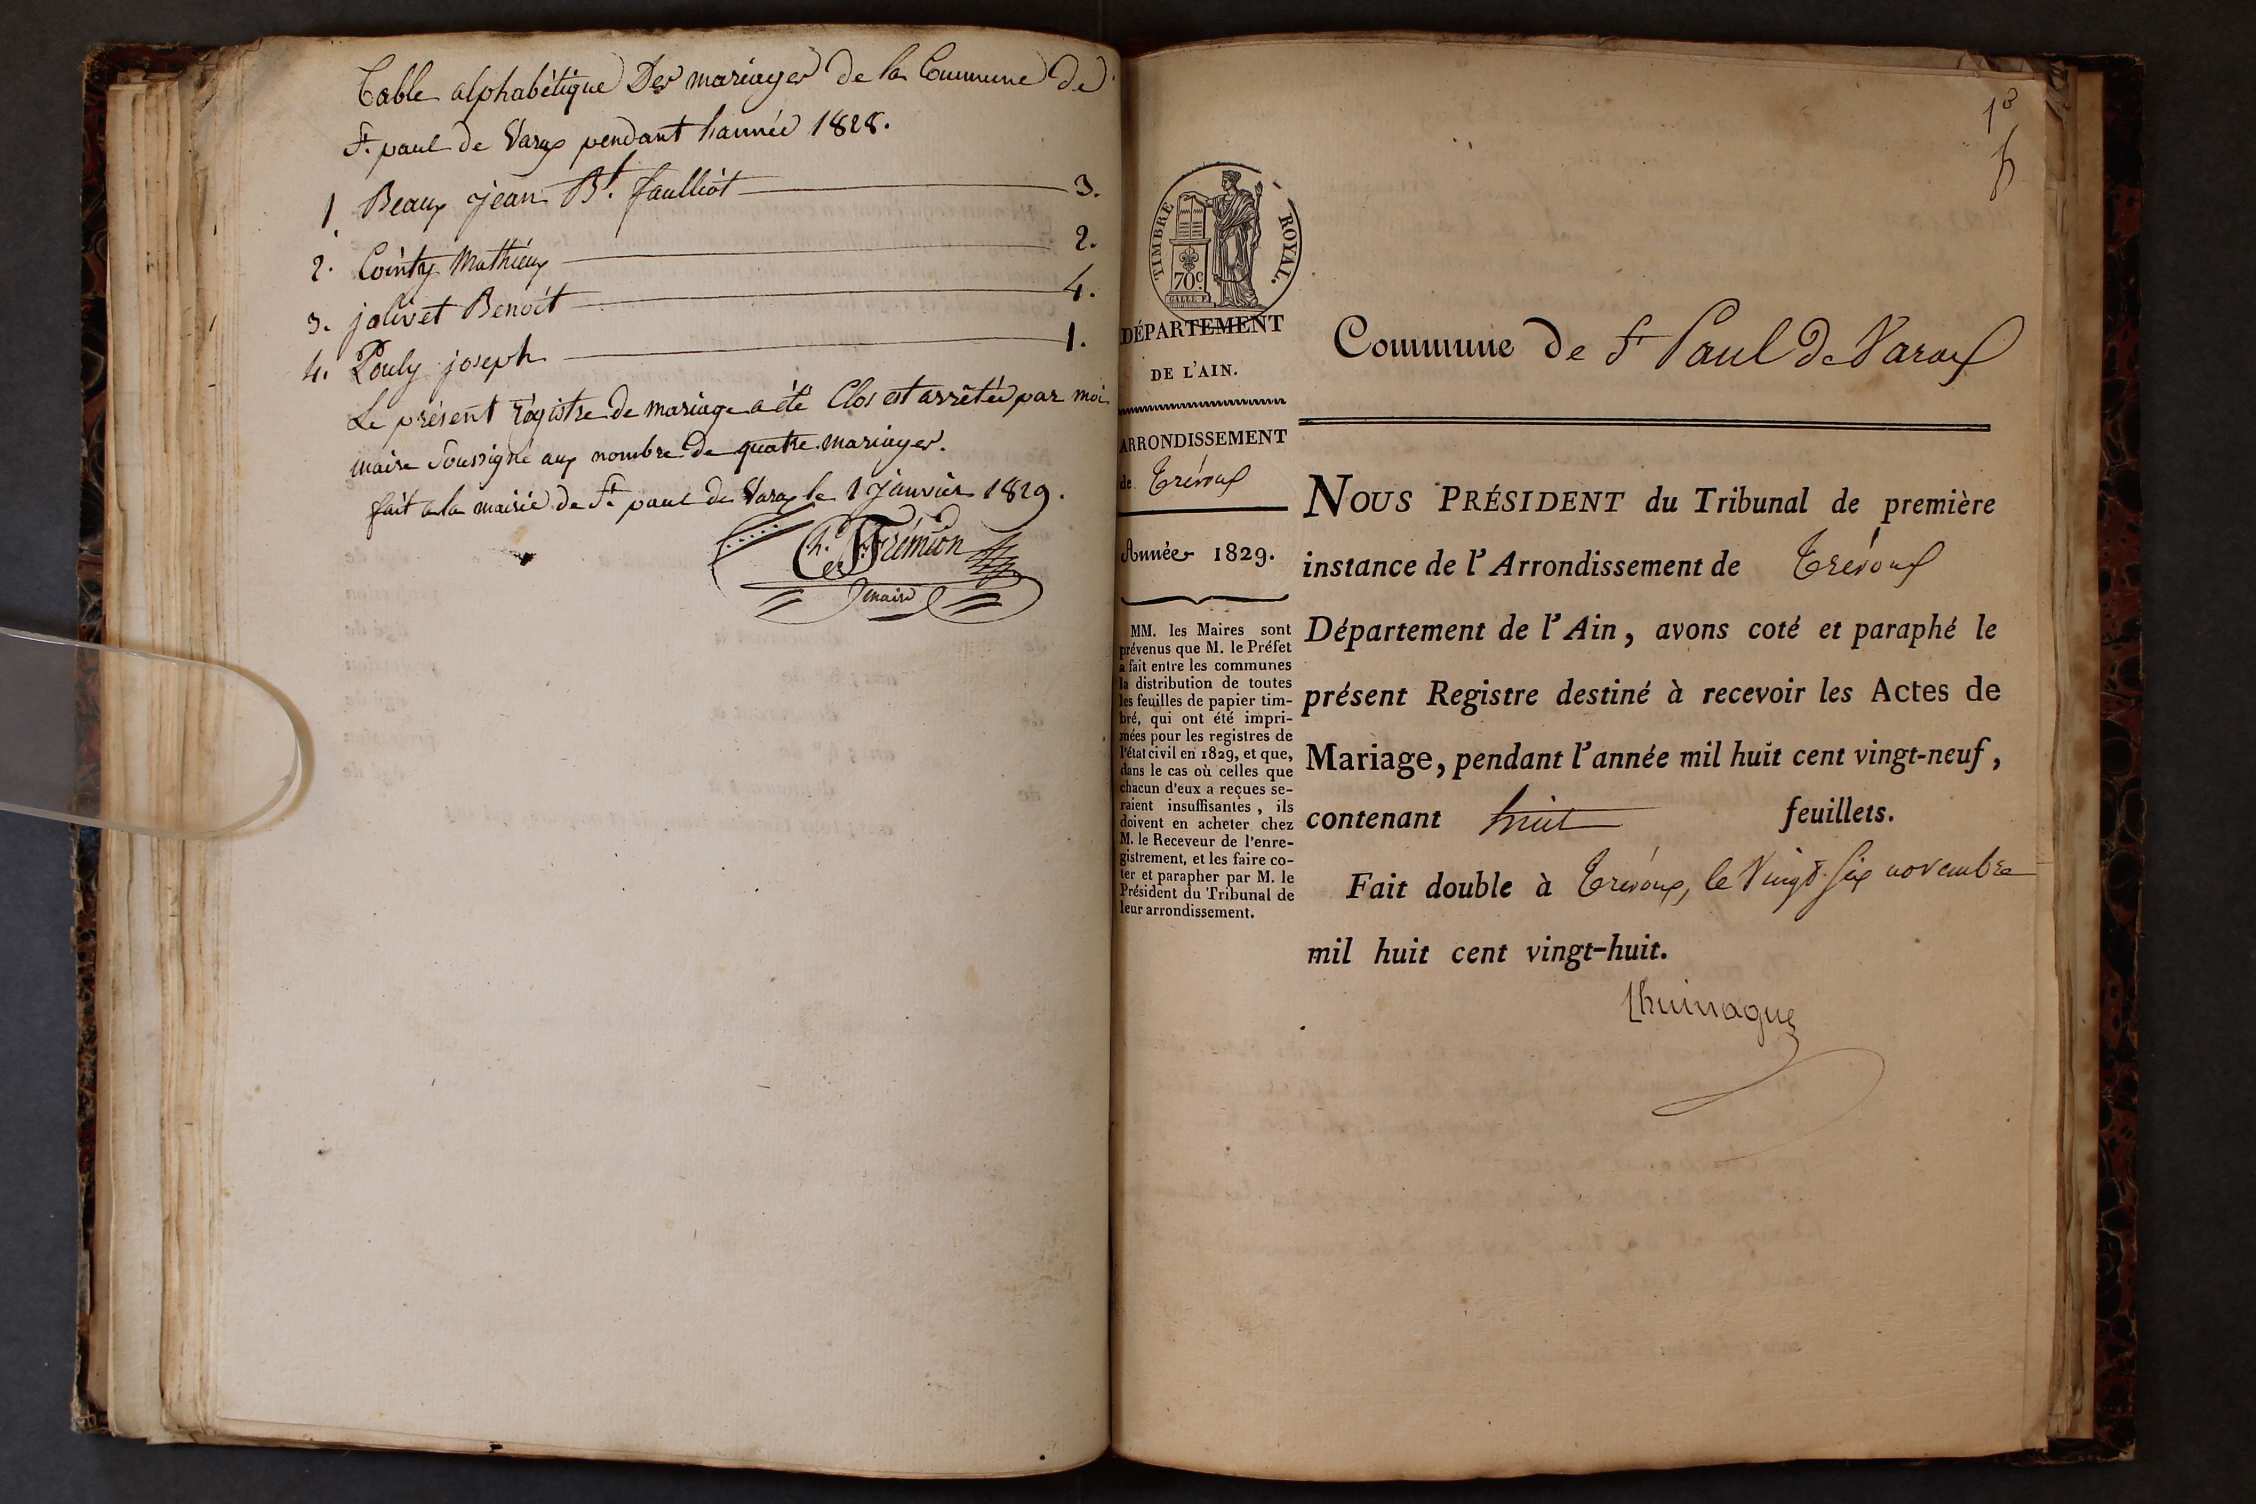 Table alphabétique Des mariages de la Commune de
St. paul de Varax pendant lannée 1828.
1 Beaux jean Bt. faulliot 3.
2. Cointy Mathieux 2.
3. jolivet Benoit 4.
4. Pouly joseph 1.
Le présent régistre de mariage a été Clos est arrêtée par moi
maire Soussigné aux nombre de quatre mariages.
fait a la mairie de St. paul de Varax le 1 Janvier 1829.
Ch. Frémion
maire
1er
TIMBRE ROYAL.
70c
DÉPARTEMENT
DE L'AIN.
ARRONDISSEMENT
de Trévoux
Année 1829.
MM. les Maires sont
prévenus que M. le Préfet
a fait entre les communes
la distribution de toutes
les feuilles de papier tim-
bré, qui ont été impri-
mées pour les registres de
l'état civil en 1829, et que,
dans le cas où celles que
chacun d'eux a reçues se-
raient insuffisantes, ils
doivent en acheter chez
M. le Receveur de l'enre-
gistrement, et les faire co-
ter et parapher par M. le
Président du Tribunal de
leur arrondissement.
Commune de St Paul de Varax
NOUS PRÉSIDENT du Tribunal de première
instance de l'Arrondissement de Trévoux
Département de l'Ain, avons coté et paraphé le
présent Registre destiné à recevoir les Actes de
Mariage, pendant l'année mil huit cent vingt-neuf,
contenant huit feuillets.
Fait double à Trévoux, le Vingt Six novembre
mil huit cent vingt-huit.